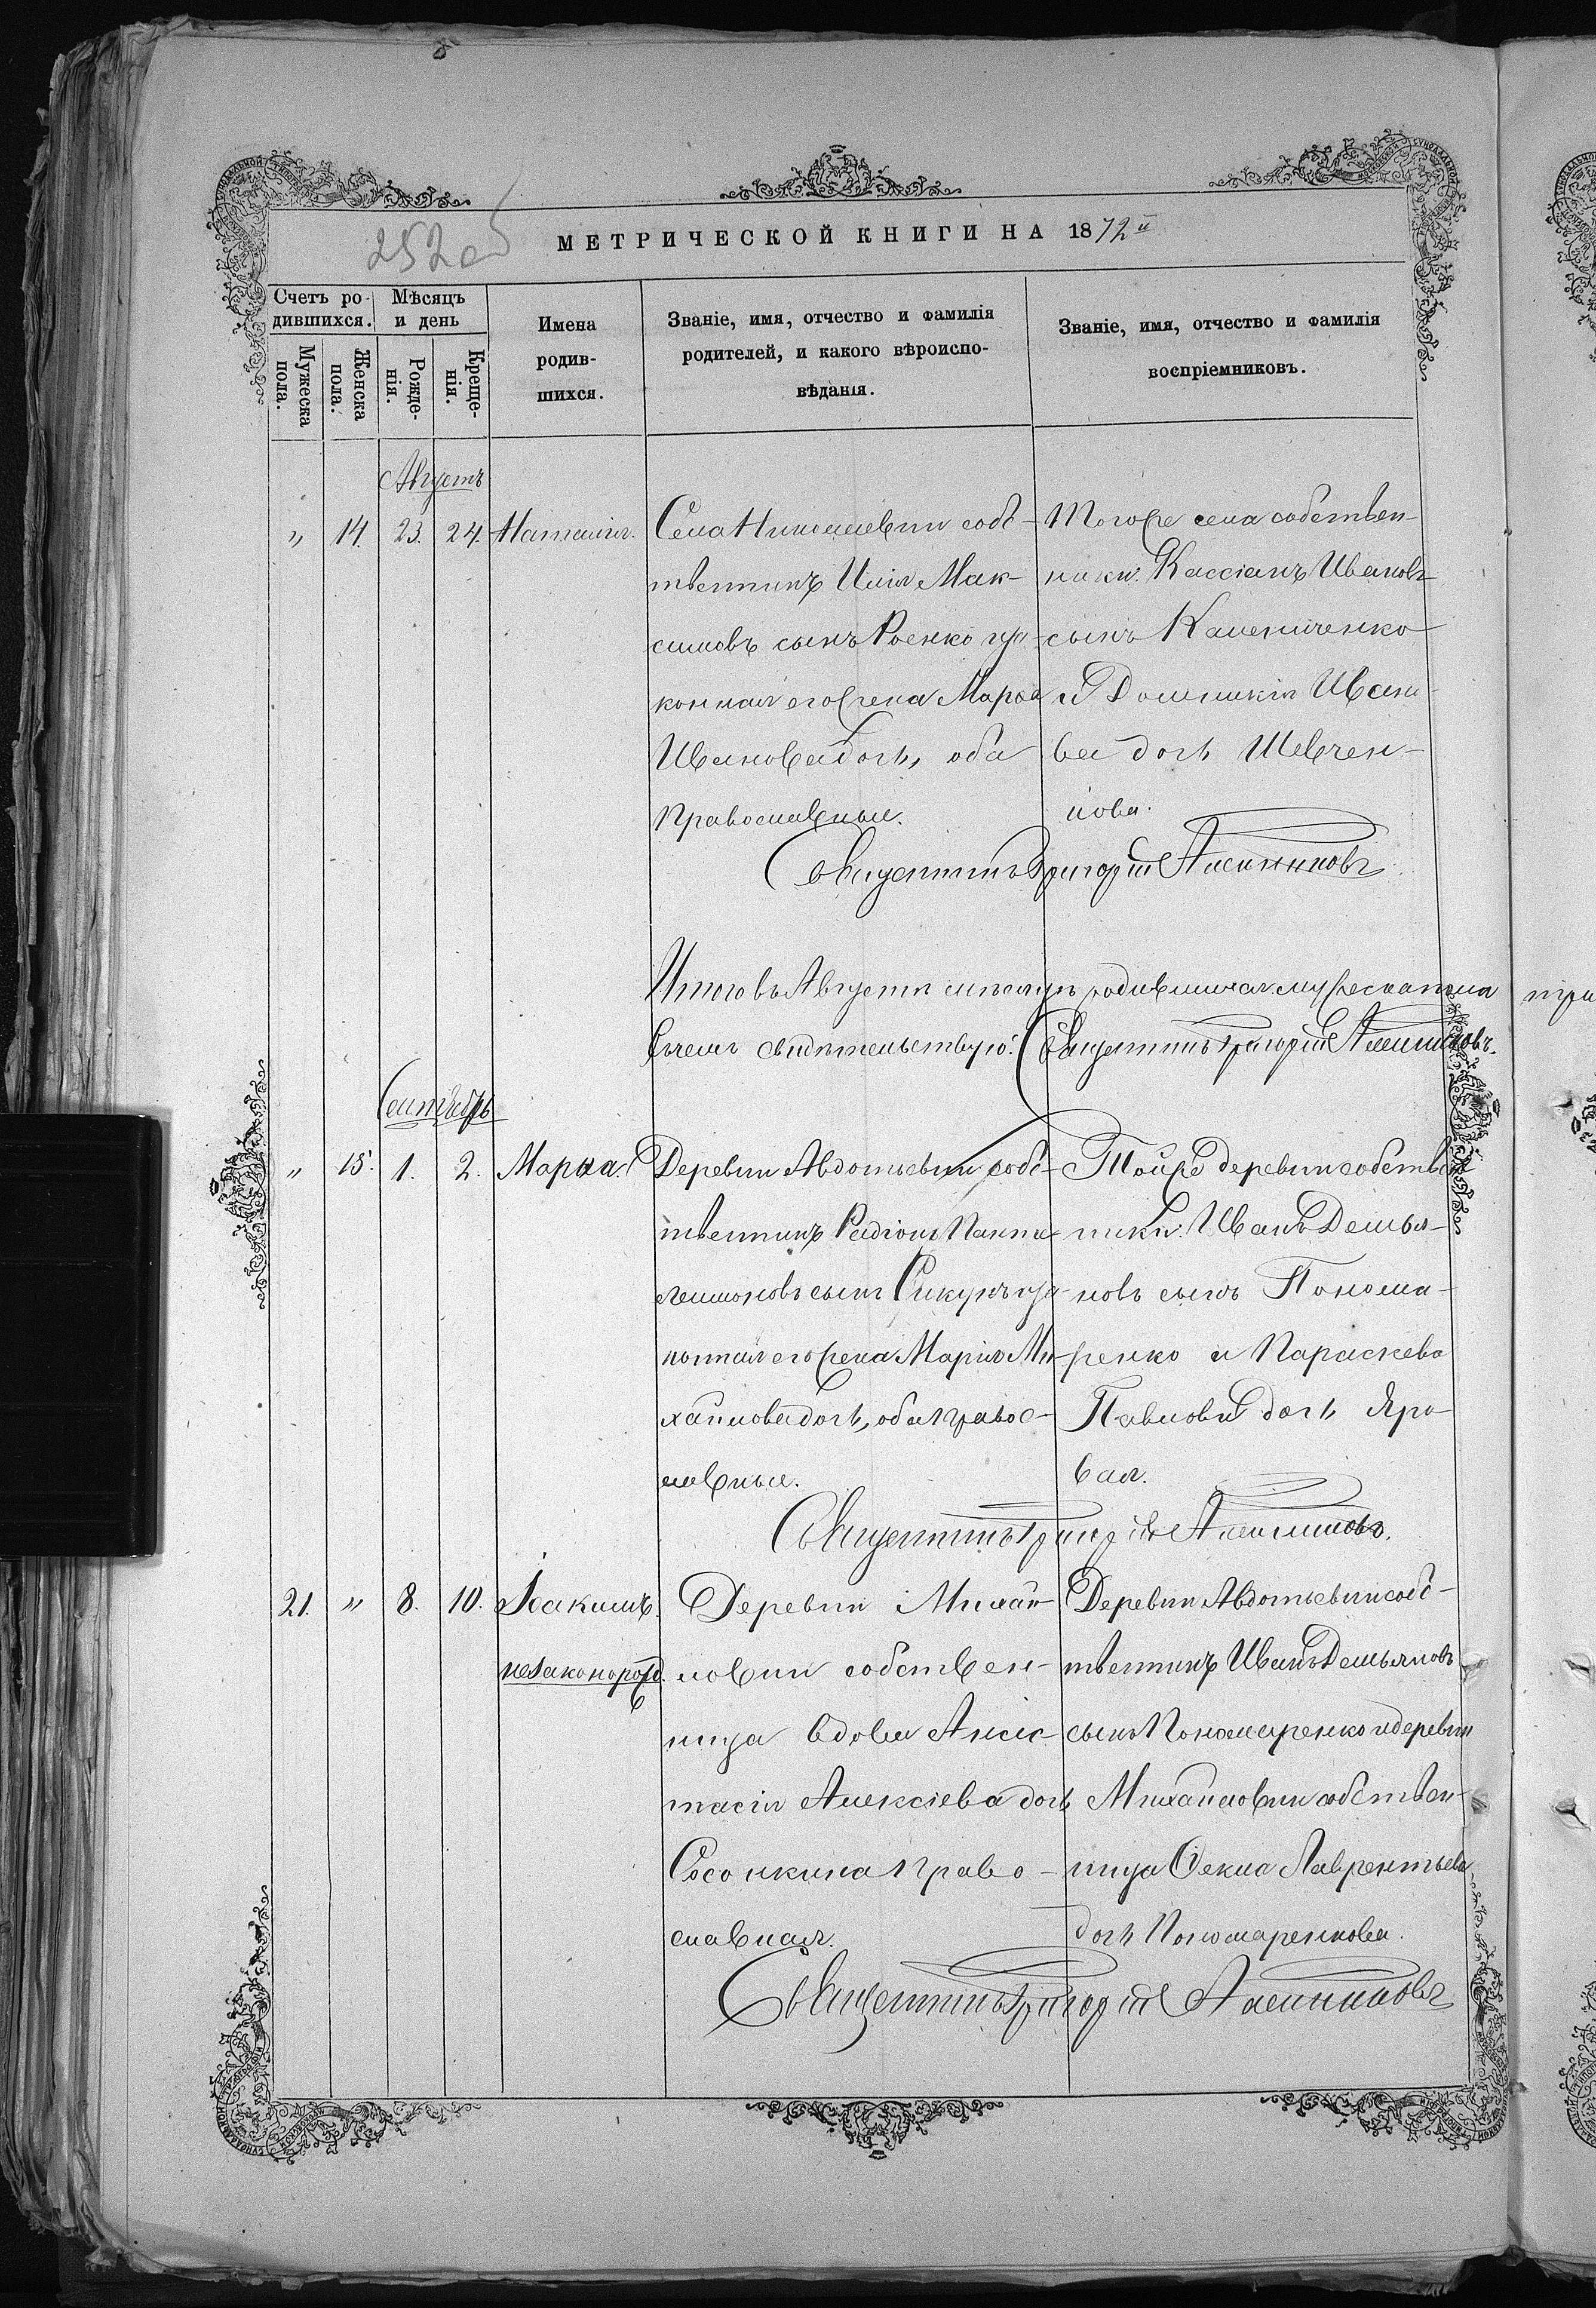 252об
МЕТРИЧЕСКОЙ КНИГИ НА 1872й
Счетъ ро-
дившихся.
Мѣсяцъ
и день
Мужеска
пола.
Женска
пола.
Рожде-
нія.
Креще-
нія.
Имена
родив-
шихся.
Званіе, имя, отчество и фамилія
родителей, и какого вѣроиспо-
вѣданія.
Званіе, имя, отчество и фамилія
воспріемниковъ.
Августъ
" 14. 23. 24. Наталія.
Села Николаевки собс-
твенникъ Илія Мак-
симовъ сынъ Роенко и за-
конная его жена Марѳа
Иванова дочь, оба
православные.
Того же села собствен-
ники: Кассіанъ Ивановъ
сынъ Калениченко
и Домникія Ивано-
ва дочь Шевчен-
кова.
Священникъ Григорій
Итого въ Августѣ мѣсяцѣ родившихся мужеска пола
въ чемъ свидѣтельствую: Священникъ Григорій
Сентябрь
" 15. 1. 2. Марѳа.
Деревни Авдотьевки собс-
твенникъ Радіонъ Панта-
лимоновъ сынъ Сикунъ и за-
конная его жена Марія Ми-
хайлова дочь, оба правос-
лавные.
Той же деревни собствен-
ники: Иванъ Демья-
новъ сынъ Понома-
ренко и Параскева
Павлова дочь Яро-
вая.
Священникъ Григорій
21. " 8. 10. Іоакимъ.
незаконорожд.
Деревни Михай-
ловки собствен-
ница вдова Анас-
тасія Алексіева дочь
Сосонкина право-
славная.
Деревни Авдотьевки собс-
твенникъ Иванъ Демьяновъ
сынъ Пономаренко и деревни
Михайловки собствен-
ница Ѳекла Лаврентьева
дочь Пономаренкова.
Священникъ Григорій